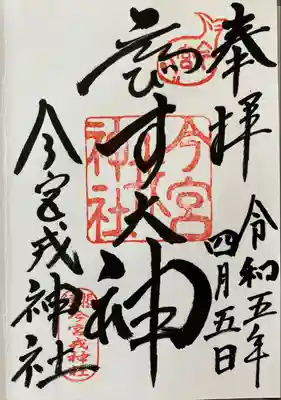 奉拝
令和五年
四月五日
ゑびす大神
今宮戎神社
今宮戎神社